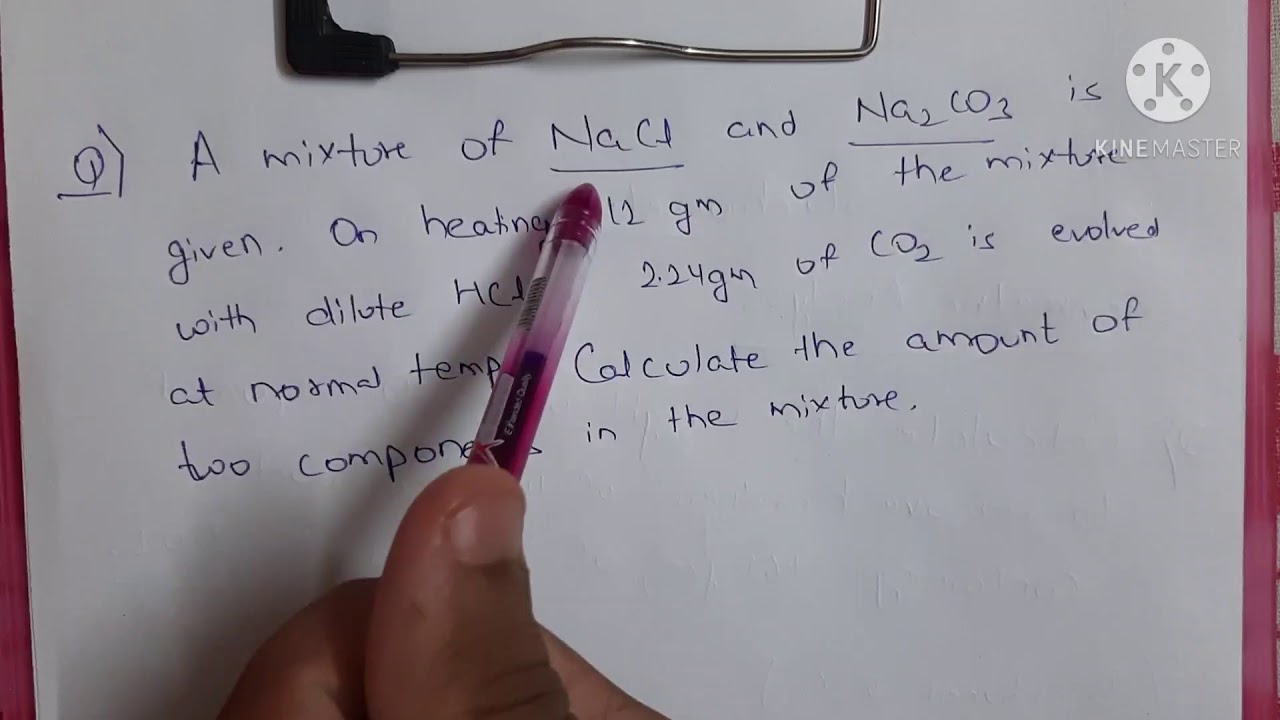 Q) A mixture of NaCl and Na2CO3 is
given. On heating 12 gm of the mixture
with dilute HCl 2.24gm of CO2 is evolved
at normal temp Calculate the amount of
two components in the mixture.
K
KINEMASTER